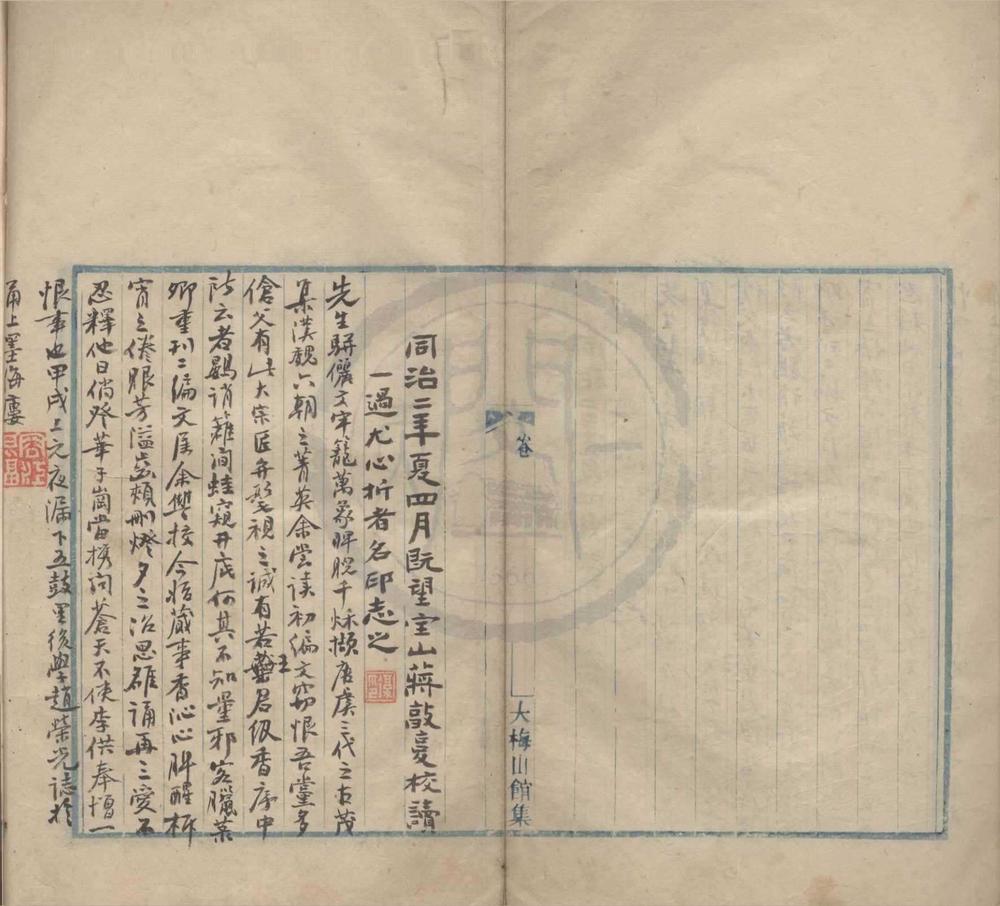 卷
大梅山館集
同治二年夏四月既望宝山蔣敦復校讀
一過尤心折者名印志之
先生駢儷文牢籠萬象睥睨千秋擷唐虞三代之古茂
集漢魏六朝之菁英余嘗讀初編文窃恨吾黨多
傖父有此大宗匠弁髦視之誠有若王君級香序中
所云者鷃誚籬洵蛙窺井底何其不知量邪客臘葉
卿重刊二编文属余與校今始蕆事香沁心脾醒析
宵之倦眼芳溢齿頰删燈夕之治思雒誦再三愛不
忍釋他日倘登華子崗當携问蒼天不使李供奉增一
恨事也甲戌上元夜漏下五鼓里後學趙榮光誌於
甬上墨海廔